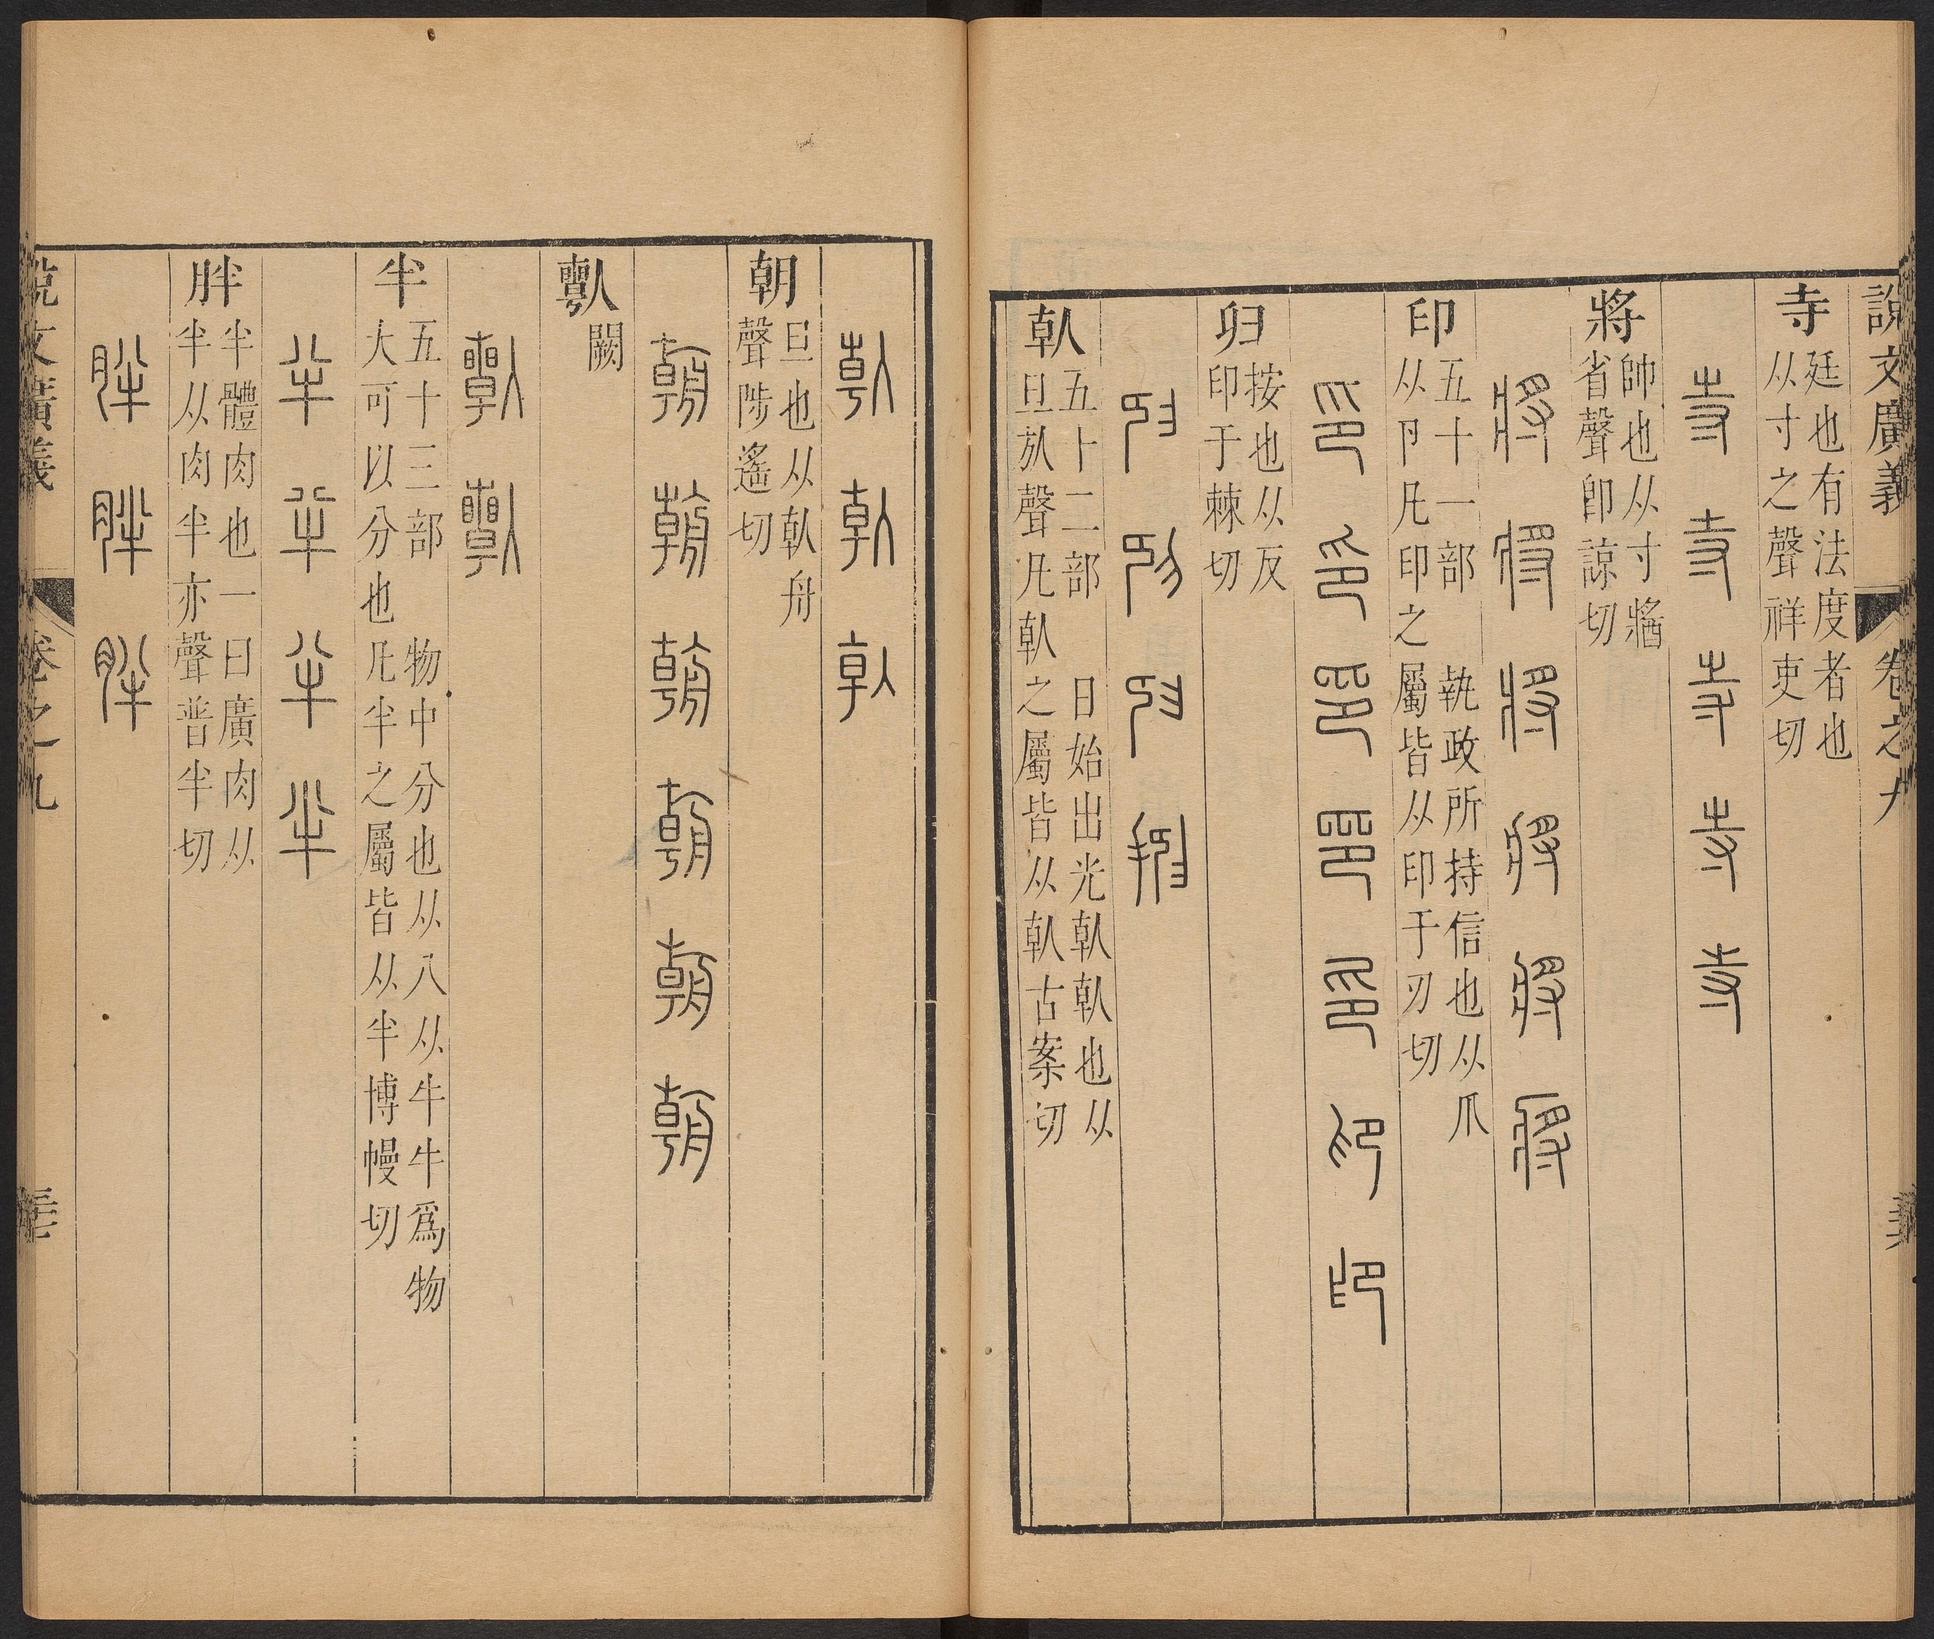 說文廣義 卷之九
寺 廷也有法度者也
从寸之聲祥吏切
寺 寺 寺 寺 寺
將 帥也从寸牆
省聲卽諒切
將 將 將 將 將 將
印 五十一部 執政所持信也从爪
从卪凡印之屬皆从印于刃切
印 印 印 印 印 印 印
归 按也从反
印于棘切
归 归 归
倝 五十二部 日始出光倝倝也从
旦㫃聲凡倝之屬皆从倝古案切
倝 倝 倝
朝 旦也从倝舟
聲陟遙切
朝 朝 朝 朝 朝 朝
闕
半 五十三部 物中分也从八从牛牛爲物
大可以分也凡半之屬皆从半博幔切
半 半 半 半
胖 半體肉也一曰廣肉从
半从肉半亦聲普半切
胖 胖 胖
說文廣義 卷之九